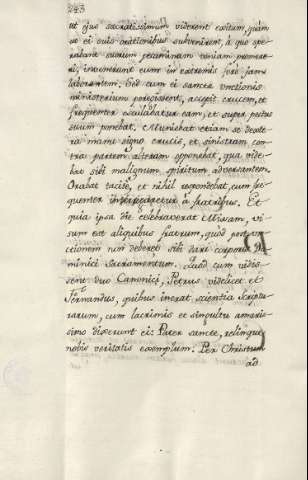 243
ut ejus sacratissimum viderent exitum, quàm
ut ei suis orationibus subvenirent, à quo spe-
rabant suorum peccaminum veniam promere-
ri, invenerunt eum in extremis jam
laborantem. Sed cum ei sancta unctionis
ministerium porrexissent, accepit crucem, et
frequenter osculabatur eam, et super pectus
suum ponebat. Muniebat etiam se dexte-
ra manu signo crucis, et sinistram con-
tra partem alteram opponebat, qua vide-
bat sibi malignum spiritum adversantem.
Orabat tacitè, et nihil respondebat, cum fre-
quenter interrogaretur à fratribus. Et
quia ipsa die celebraverat Missam, vi-
sum est aliquibus fratrum, quòd post un-
ctionem non deberet sibi dari corporis Do-
minici Sacramentum. Quod cum vidis-
sent duo Canonici, Petrus videlicet et
Fernandus, quibus inerat scientia Scriptu-
rarum, cum lacrimis et singultu amaris-
simo dixerunt ei: Pater sancte, relinque
nobis veritatis exemplum. Per Christum
ad